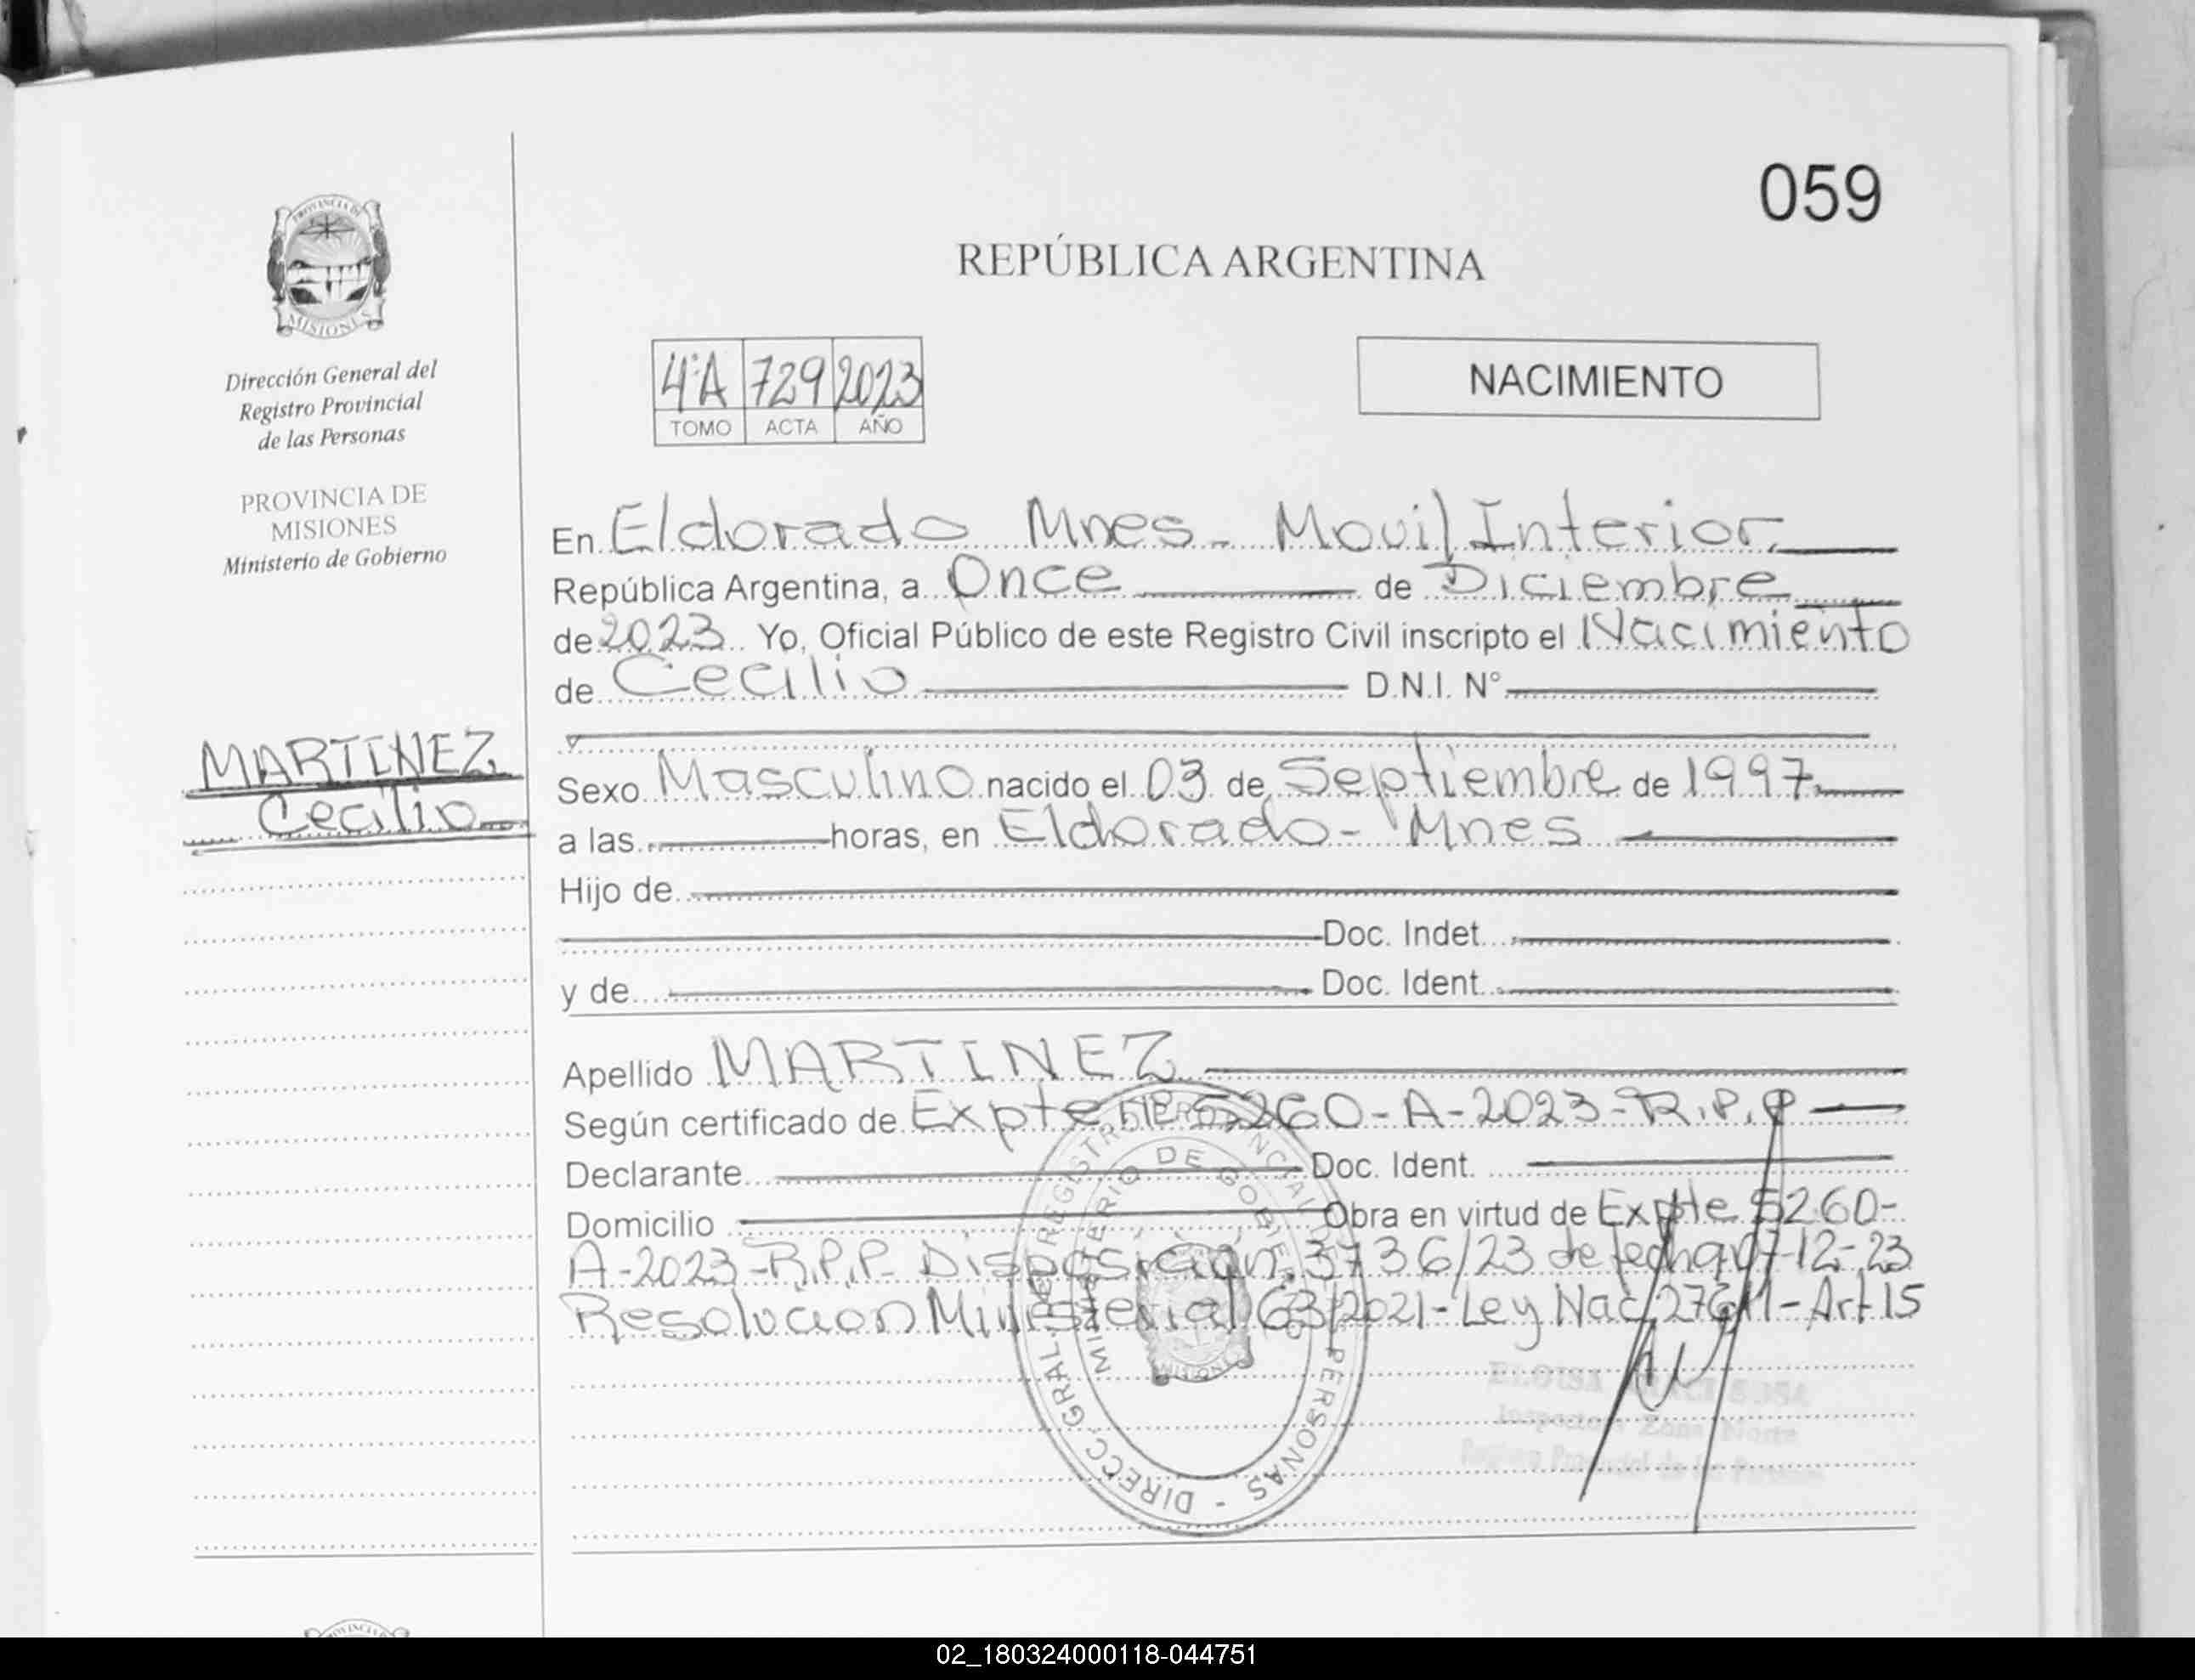 059
PROVINCIA DE
MISIONES
Dirección General del
Registro Provincial
de las Personas
PROVINCIA DE
MISIONES
Ministerio de Gobierno
MARTINEZ
Cecilio
REPÚBLICA ARGENTINA
4°A 729 2023
TOMO ACTA AÑO
NACIMIENTO
En Eldorado Mnes - Movil Interior.
República Argentina, a Once de Diciembre
de 2023 Yo, Oficial Público de este Registro Civil inscripto el Nacimiento
de Cecilio D.N.I. N°
Sexo Masculino nacido el 03 de Septiembre de 1997
a las horas, en Eldorado - Mnes
Hijo de
Doc. Indet.
y de Doc. Ident.
Apellido MARTINEZ
Según certificado de Expte Nº 5260-A-2023-R.P.P
Declarante Doc. Ident.
Domicilio Obra en virtud de Expte 5260-
A-2023-R.P.P. Disposición 3736/23 de fecha 07-12-23
Resolucion Ministerial 63/2021-Ley Nac 27611-Art 15
DIRECC. GRAL. DEL REGISTRO PROVINCIAL DE LAS PERSONAS -
MINISTERIO DE GOBIERNO
MISIONES
ELOISA SOSA
Inspectora Zona Norte
Registro Provincial de las Personas
02_180324000118-044751